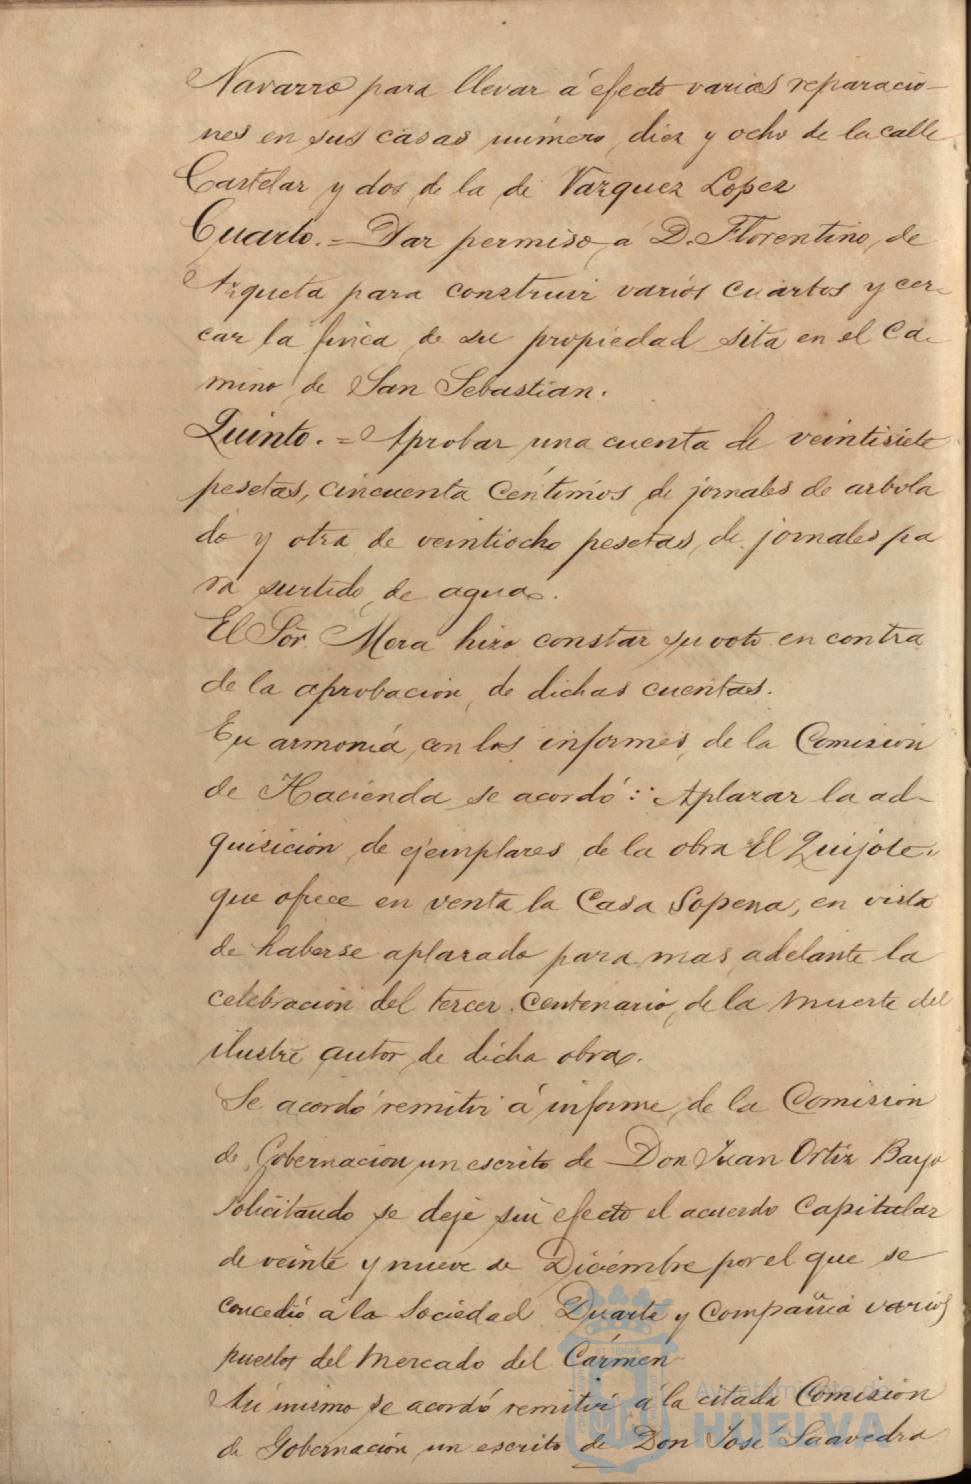 Navarro para llevar á efecto varias reparacio-
nes en sus casas número diez y ocho de la calle
Castelar y dos de la de Vazquez Lopez
Cuarto.=Dar permiso a D. Florentino de
Azqueta para construir varios cuartos y cer-
car la finca de su propiedad sita en el Ca-
mino de San Sebastian.
Quinto.=Aprobar una cuenta de veintisiete
pesetas, cincuenta centimos de jornales de arbola
do y otra de veintiocho pesetas de jornales pa
ra surtido de aguas.
El Sór. Mora hizo constar su voto en contra
de la aprobación de dichas cuentas.
En armonía con los informes de la Comision
de Hacienda se acordó: Aplazar la ad-
quisición de ejemplares de la obra "El Quijote"
que ofrece en venta la Casa Sopena, en vista
de haberse aplazado para mas adelante la
celebración del tercer Centenario de la muerte del
ilustre autor de dicha obra.
Se acordó remitir á informe de la Comision
de Gobernacion un escrito de Don Juan Ortiz Bayo
solicitando se deje sin efecto el acuerdo Capitular
de veinte y nueve de Diciembre por el que se
concedió a la Sociedad Duarte y Compañia varios
puestos del Mercado del Cármen
Asi mismo se acordó remitir á la citada Comision
de Gobernación un escrito de Don José Saavedra
Ayuntamiento de
HUELVA